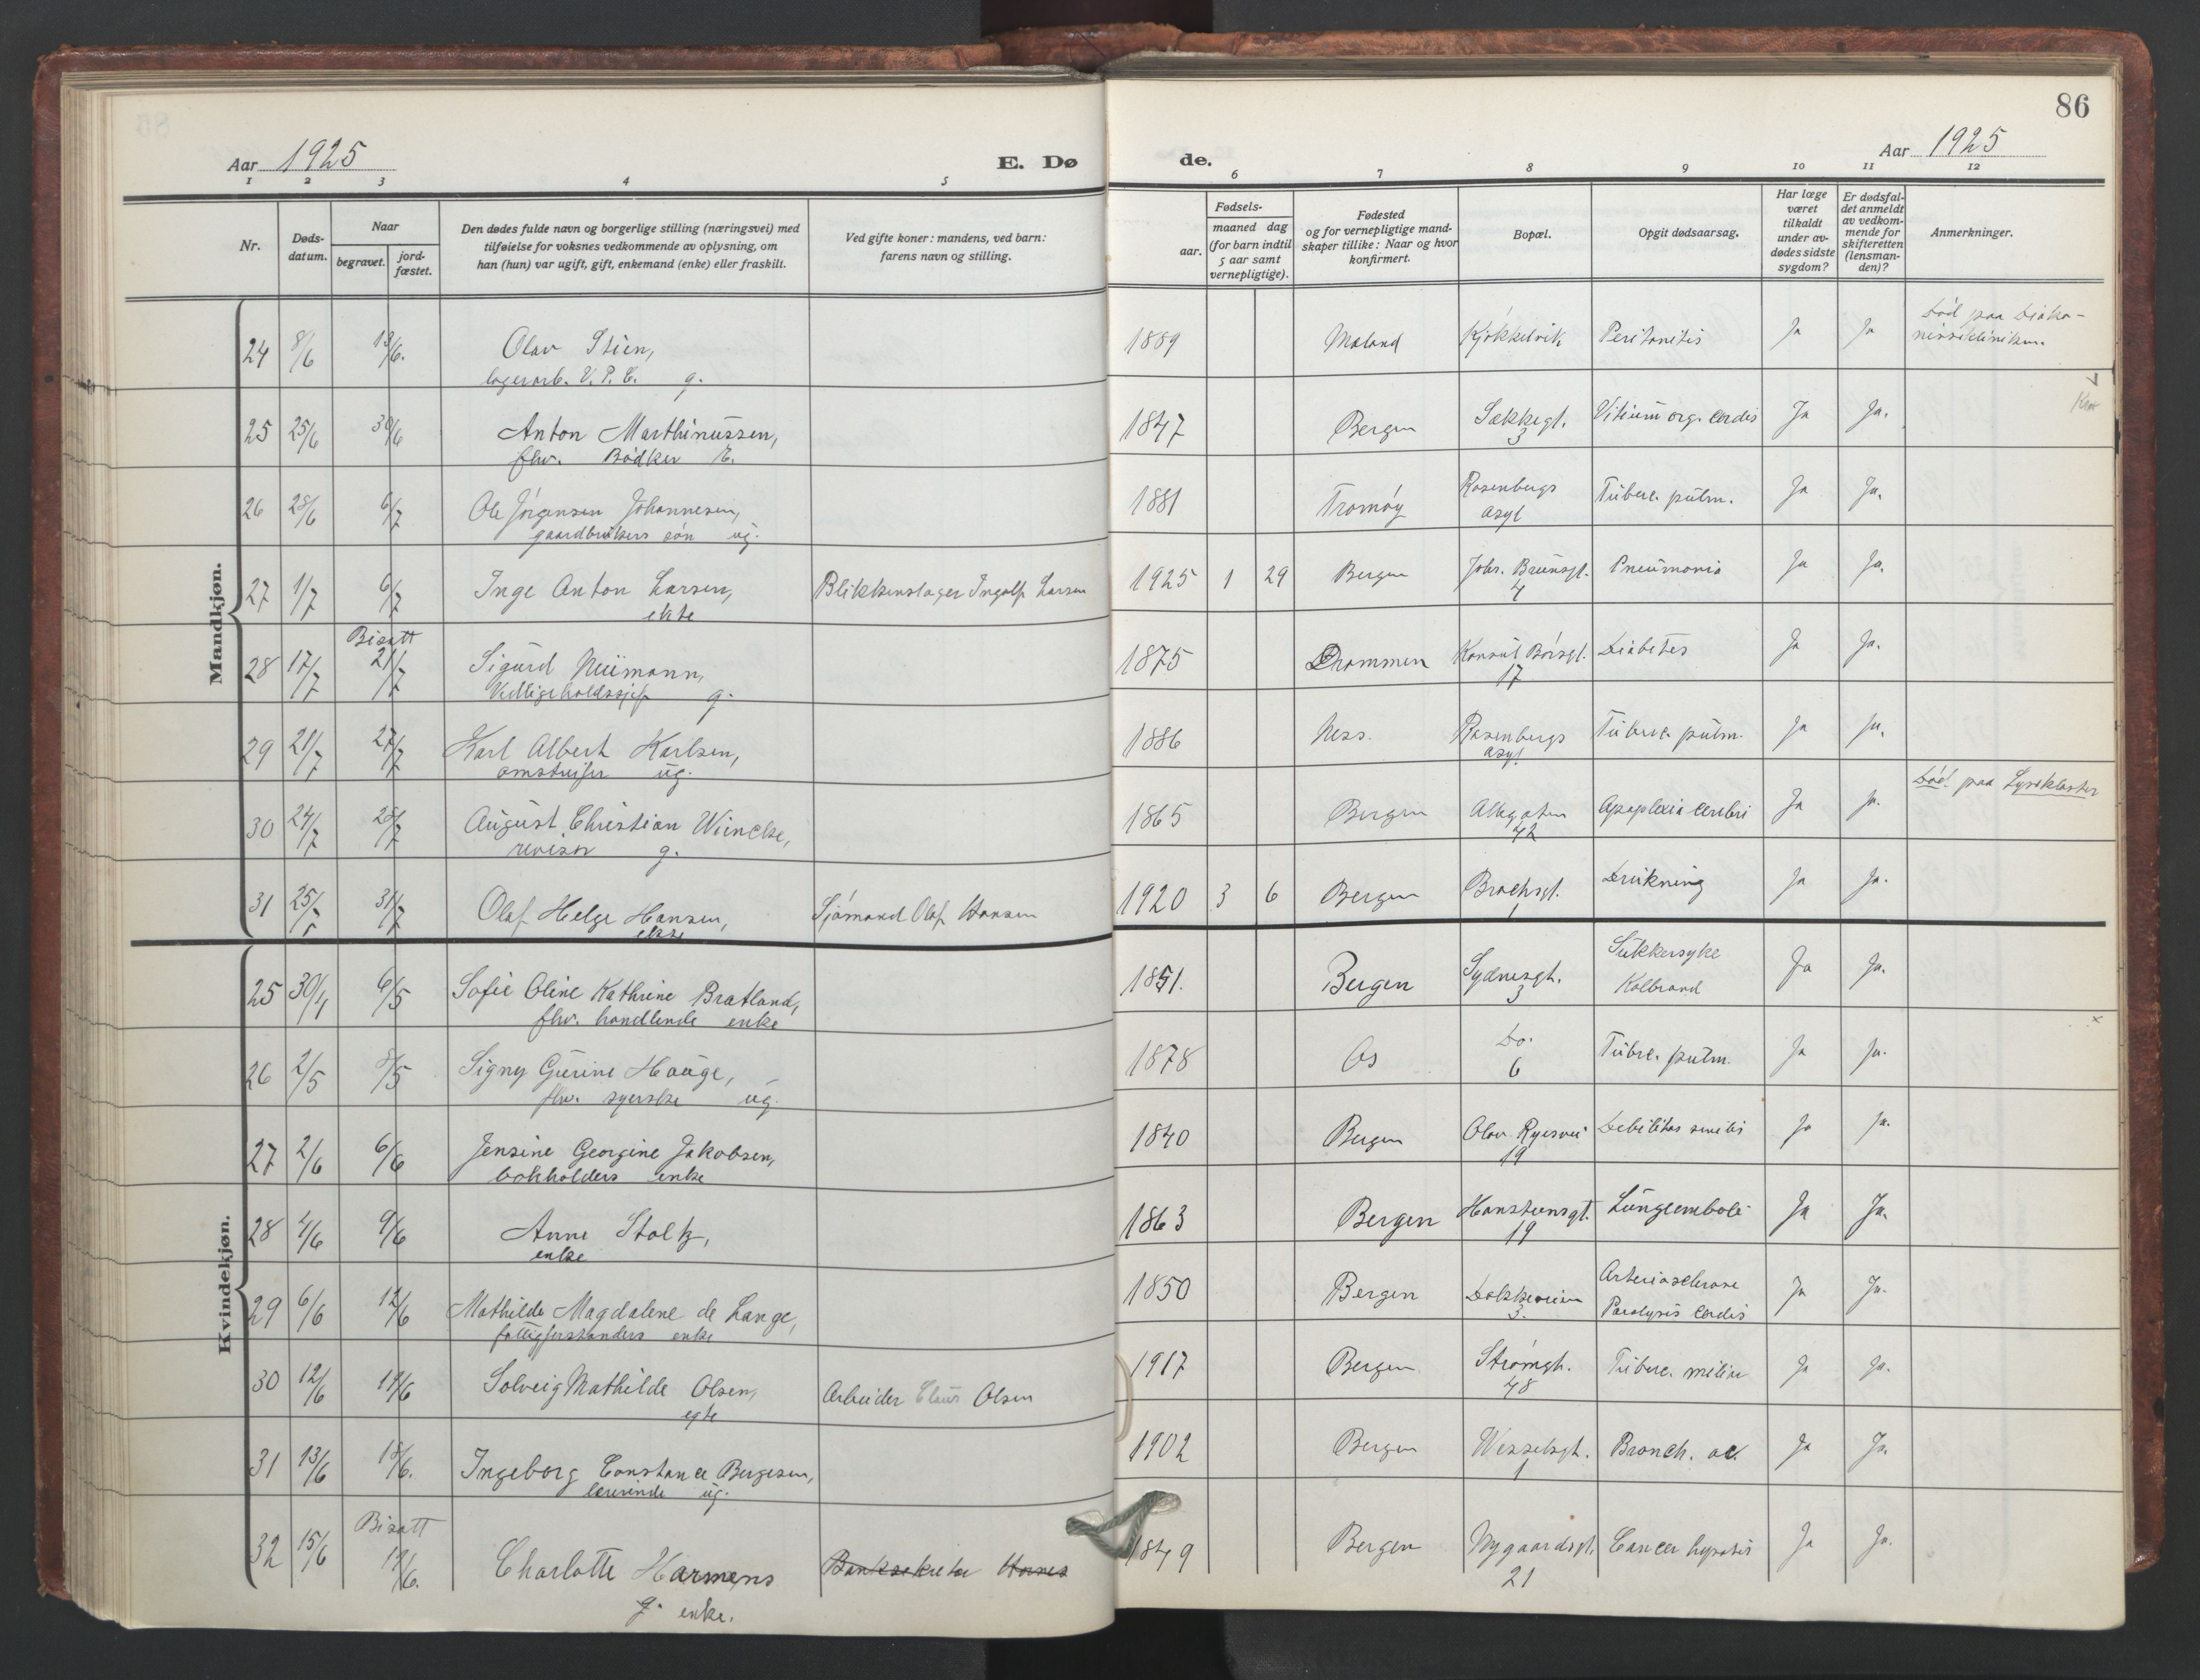 86
Aar 1925
E. Dø
de.
Aar 1925
1 2 3 4 5 6 7 8 9 10 11 12
Nr.
Døds-
datum.
Naar
begravet.
jord-
fæstet.
Den dødes fulde navn og borgerlige stilling (næringsvei) med
tilføielse for voksnes vedkommende av oplysning, om
han (hun) var ugift, gift, enkemand (enke) eller fraskilt.
Ved gifte koner: mandens, ved barn:
farens navn og stilling.
Fødsels-
aar.
maaned dag
(for barn indtil
5 aar samt
vernepligtige).
Fødested
og for vernepligtige mand-
skaper tillike: Naar og hvor
konfirmert.
Bopæl.
Opgit dødsaarsag.
Har læge
været
tilkaldt
under av-
dødes sidste
sygdom?
Er dødsfal-
det anmeldt
av vedkom-
mende for
skifteretten
(lensman-
den)?
Anmerkninger.
Mandkjøn.
24 8/6 13/6. Olav Stien, 1889 Kjøkkelvik Peritonitis Ja Ja Død paa Diako-
lagerarb. V. P. E. g. nisseklinikken.
25 25/6 30/6 Anton Marthinussen, 1847 Bergen Sækkegt. Vitium org. cordis Ja Ja.
fhv. Bødker E. 3
26 28/6 6/7 Ole Jørgensen Johannesen, 1881 Tromøy Rosenbergs Tuberc. pulm. Ja Ja.
gaardbrukers søn ug. asyl
27 1/7 6/7 Inge Anton Larsen, Blikkenslager Ingolf Larsen 1925 1 29 Bergen Johs. Brunsgt. Pneumonia Ja Ja.
ekte 4
Bisatt
28 17/7 21/7 Sigurd Neumann, 1875 Drammen Konsul Børsgt. Diabetes Ja Ja.
Vedligeholdssjef g. 17
29 21/7 27/7 Karl Albert Karlsen, 1886 Ness. Rosenbergs Tuberc. pulm. Ja Ja.
omstreifer ug. asyl
30 24/7 28/7 August Christian Wiencke, 1865 Bergen Allegaten Apoplexia cerebri Ja Ja. Død paa Lysekloster
revisor g. 42
31 25/7 31/7 Olaf Helge Hansen, Sjømand Olaf Hansen 1920 3 6 Bergen Brochsgt. Drukning Ja Ja.
ekte 1
Kvindekjøn.
25 30/4 6/5 Sofie Oline Kathrine Bratland, 1851. Bergen Sydnesgt. Sukkersyke Ja Ja.
fhv. handlende enke 3 Kolbrand
26 2/5 8/5 Signy Gurine Hauge, 1878 Os Do. Tubrc. pulm. Ja Ja.
fhv. syerske ug. 6
27 2/6 6/6 Jensine Georgine Jakobsen, 1840 Bergen Olav Ryesvei Debilitas senilis Ja Ja.
bokholders enke 19
28 4/6 9/6 Anne Stoltz, 1863 Bergen Hansteensgt. Lungeemboli Ja Ja.
enke 19
29 6/6 12/6 Mathilde Magdalene de Lange, 1850 Bergen Dokkeveien Arteriosclerose Ja Ja.
fattigforstanders enke 3. Paralysis cordis
30 12/6 19/6 Solveig Mathilde Olsen, Arbeider Claus Olsen 1917 Bergen Strømgt. Tuberc. miliær Ja Ja.
egte 48
31 13/6 18/6. Ingeborg Constance Bergesen, 1902 Bergen Wesselsgt. Bronch. ac. Ja Ja.
lærerinde ug. 1
Bisatt
32 15/6 19/6. Charlotte Harmens Banksekretær 1849 Bergen Nygaardsgt. Cancer hepatis Ja Ja.
g. enke. 21